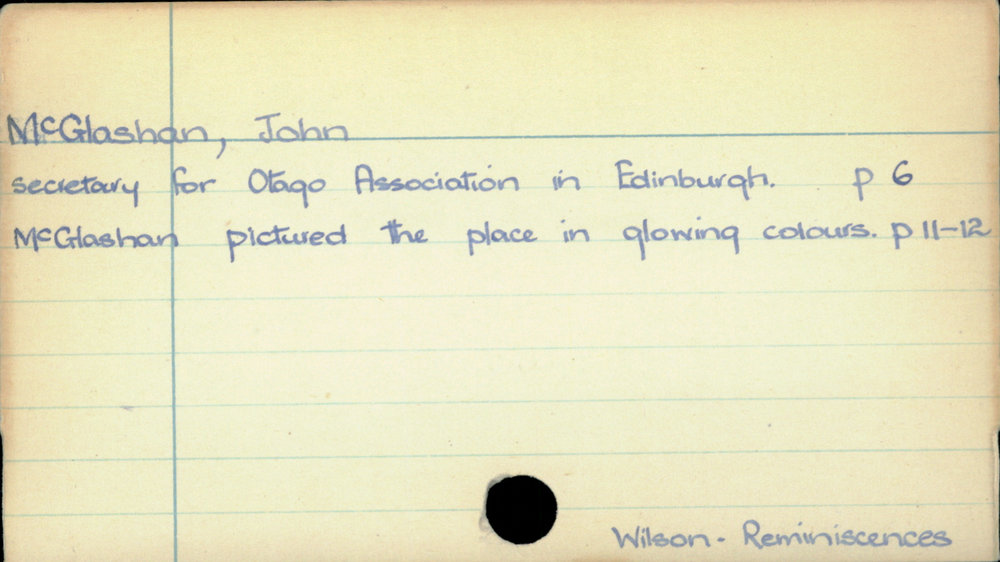 McGlashan, John
secretary for Otago Association in Edinburgh. p 6
McGlashan pictured the place in glowing colours. p 11-12
Wilson - Reminiscences